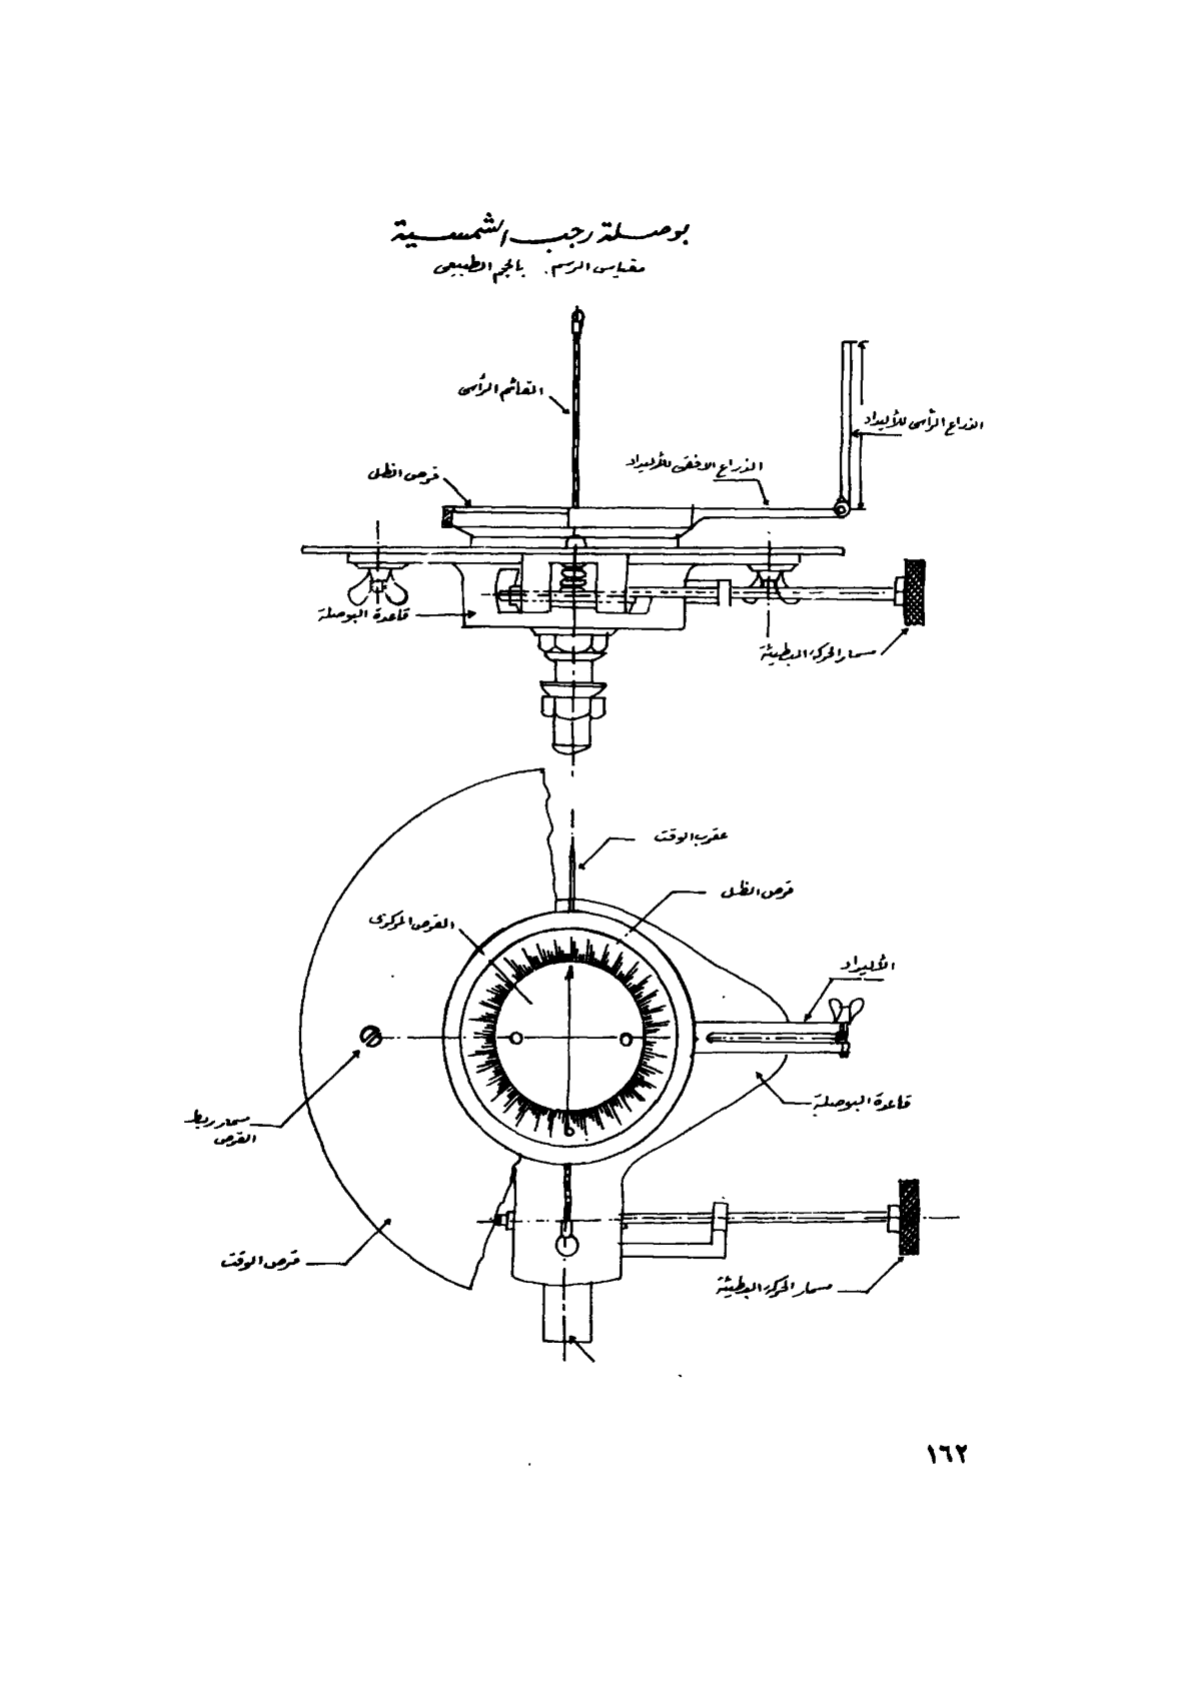 بوصلة رجب الشمسية
مقياس الرسم. بالحجم الطبيعى
القائم الرأسى
الذراع الرأسى للأليداد
الذراع الافقى للأليداد
قرص الظل
قاعدة البوصلة
مسمار الحركة البطيئة
عقرب الوقت
قرص الظل
القرص المركزى
الأليداد
قاعدة البوصلة
مسمار ربط
القرص
قرص الوقت
مسمار الحركة البطيئة
١٦٢